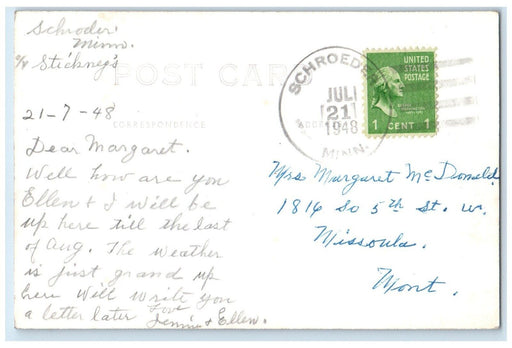 Schroder
Minn.
% Stickney's
POST CARD
21-7-48
CORRESPONDENCE
Dear Margaret.
Well how are you
Ellen & I will be
up here till the last
of Aug. The weather
is just grand up
here Will write you
a letter later Love
Jennie & Ellen.
SCHROEDER
JUL
21
1948
MINN.
UNITED
STATES
POSTAGE
1 CENT 1
Mrs Margaret McDonald
1816 So 5th St. W.
Missoula.
Mont.